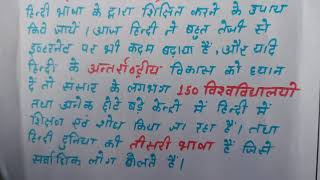 हिन्दी भाषा के द्वारा शिक्षित करने के उपाय
किये जायें। आज हिन्दी ने बहुत तेजी से
इन्टरनेट पर भी कदम बढ़ाया है, और यदि
हिन्दी के अन्तर्राष्ट्रीय विकास को ध्यान
दें तो संसार के लगभग 150 विश्वविद्यालयों
तथा अनेक छोटे बड़े केन्द्रों में हिन्दी में
शिक्षण एवं शोध किया जा रहा है। तथा
हिन्दी दुनिया की तीसरी भाषा है जिसे
सर्वाधिक लोग बोलते हैं।